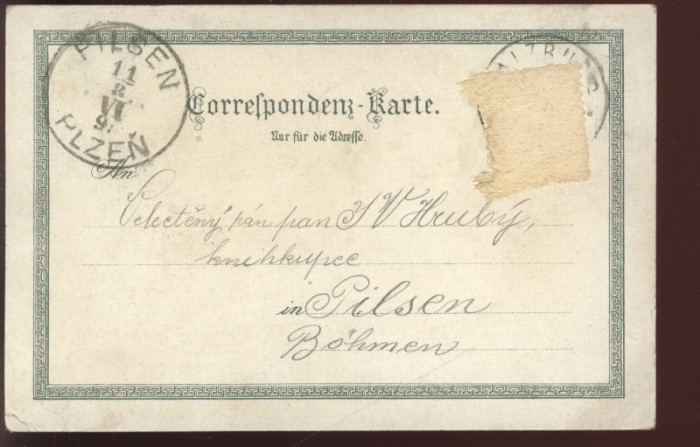 PILSEN
11
8
VI
9
PLZEN
ALZBU
Correspondenz-Karte.
Nur für die Adresse.
An
Velectěný pán pan J V Hrubý,
knihkupec
in Pilsen
Böhmen